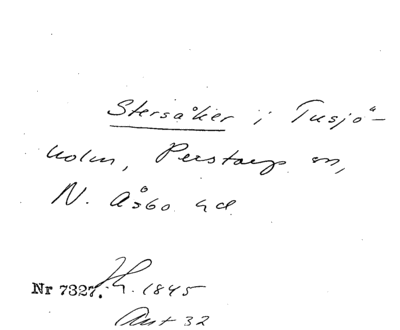 Stersåker i Tusjö-
holm, Perstorps sn,
N. Åsbo hd
Nr 7327. h. 1845
Ant 32